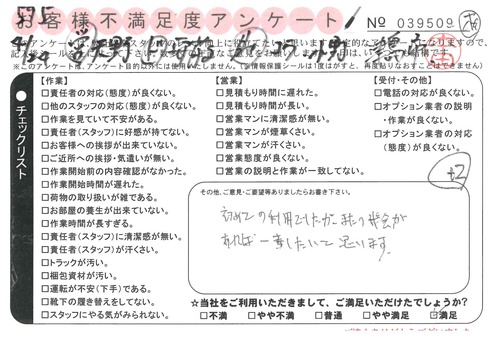 お客様不満足度アンケート
No 039509
※このアンケートは、アンケート目的以外には使用いたしません。
チェックリスト
【作業】
□責任者の対応(態度)が良くない。
□他のスタッフの対応(態度)が良くない。
□作業を見ていて不安がある。
□責任者(スタッフ)に好感が持てない。
□お客様への挨拶が出来ていない。
□ご近所への挨拶・気遣いが無い。
□作業開始前の内容確認がなかった。
□作業開始時間が遅れた。
□荷物の取り扱いが雑である。
□お部屋の養生が出来ていない。
□作業時間が長すぎる。
□責任者(スタッフ)に清潔感が無い。
□責任者(スタッフ)が汗くさい。
□トラックが汚い。
□梱包資材が汚い。
□運転が不安(下手)である。
□靴下の履き替えをしてない。
□スタッフにやる気がみられない。
【営業】
□見積もり時間に遅れた。
□見積もり時間が長い。
□営業マンに清潔感が無い。
□営業マンが煙草くさい。
□営業マンが汗くさい。
□営業態度が良くない。
□営業の説明と作業が一致してない。
【受付・その他】
□電話の対応が良くない。
□オプション業者の説明
・作業が良くない。
□オプション業者の対応
(態度)が良くない。
+2
その他、ご意見・ご要望等ありましたらお書き下さい。
初めての利用でしたが またの機会が
あれば 一番したいと思います。
☆当社をご利用いただきまして、ご満足いただけたでしょうか?
□不満 □やや不満 □普通 □やや満足 ☑満足